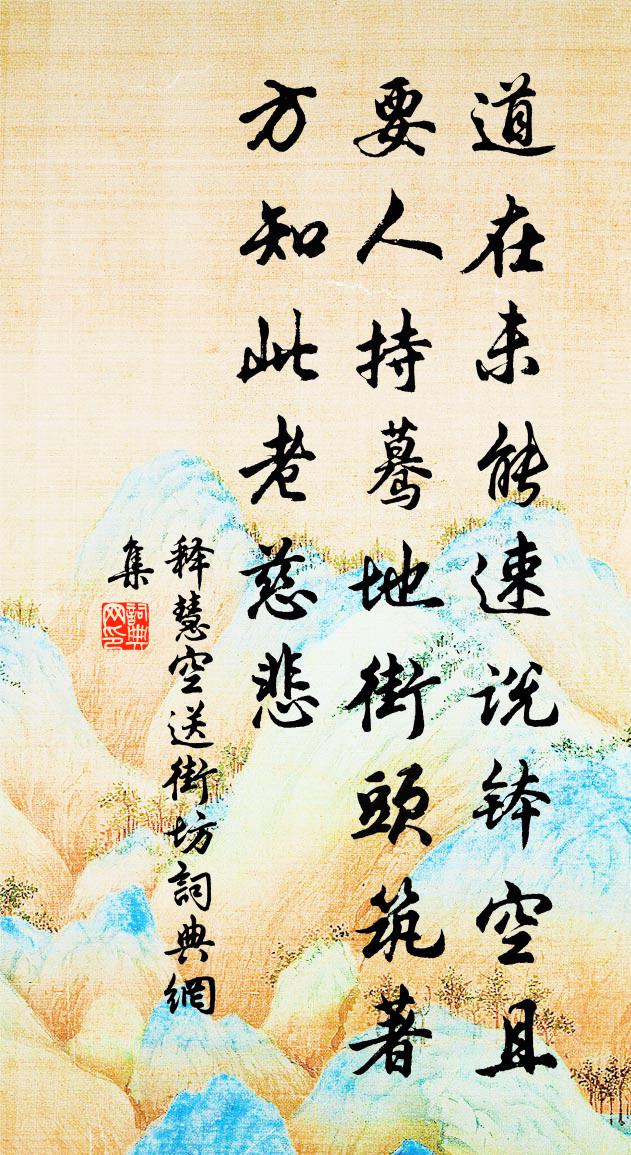 道在未能速说钵空且
要人持蓦地街頭筑著
方知此老慈悲
释慧空送街坊詞典網
集
詞典